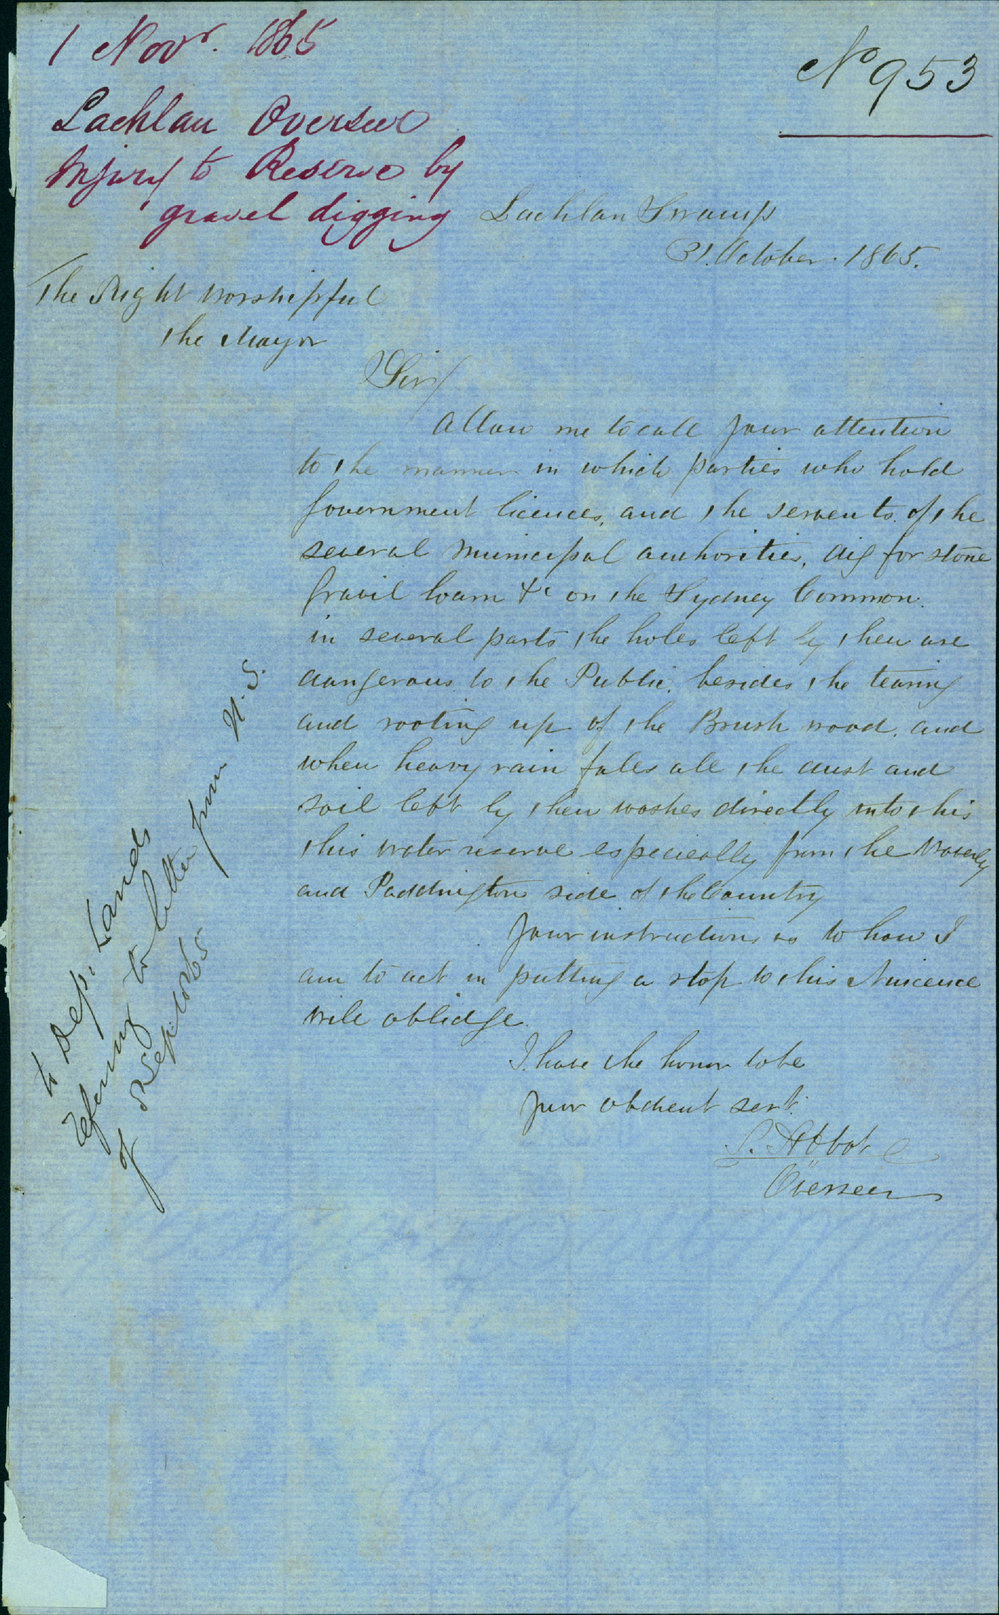 1 Novr. 1865
No 953
Lachlan Overseer
Injury to Reserve by
gravel digging
Lachlan Swamp
31. October. 1865.
The Right Worshipful
the Mayor
Sir/
Allow me to call your attention
to the manner in which parties who hold
Government licences, and the servents of the
several Municipal authorities, dig for stone
Gravil loam &c on the Sydney Common.
in several parts the holes left by them are
dangerous to the Public, besides the tearing
and rooting up of the Brush wood, and
when heavy rain falls all the dust and
soil left by them washes directly into this
this water reserve especieally from the Waverly
and Paddington side of the Country
Your instructions as to how I
am to act in putting a stop to this Nuicence
will oblidge
I have the honor to be
your obdient servt.
Abbot
Overseer
to Dep. Lands
refering to letter from N.S.
of Sep. 1865